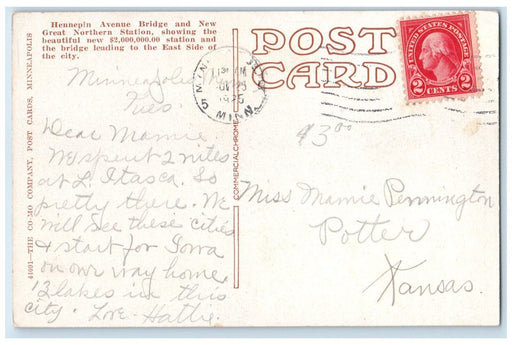 Hennepin Avenue Bridge and New
Great Northern Station, showing the
beautiful new $2,000,000.00 station and
the bridge leading to the East Side of
the city.
POST
CARD
UNITED STATES POSTAGE
2 CENTS 2
MINN.
5
1925
Minneapolis
Tues.
Dear Mamie.
We spent 2 nites
at L. Itasca. So
pretty there. We
will see these cities
& start for Iowa
on our way home.
12 lakes in this
city. Love. Hattie.
$3.00
Miss Mamie Pennington
Potter
Kansas.
COMMERCIALCHROME
44691—THE CO-MO COMPANY, POST CARDS, MINNEAPOLIS